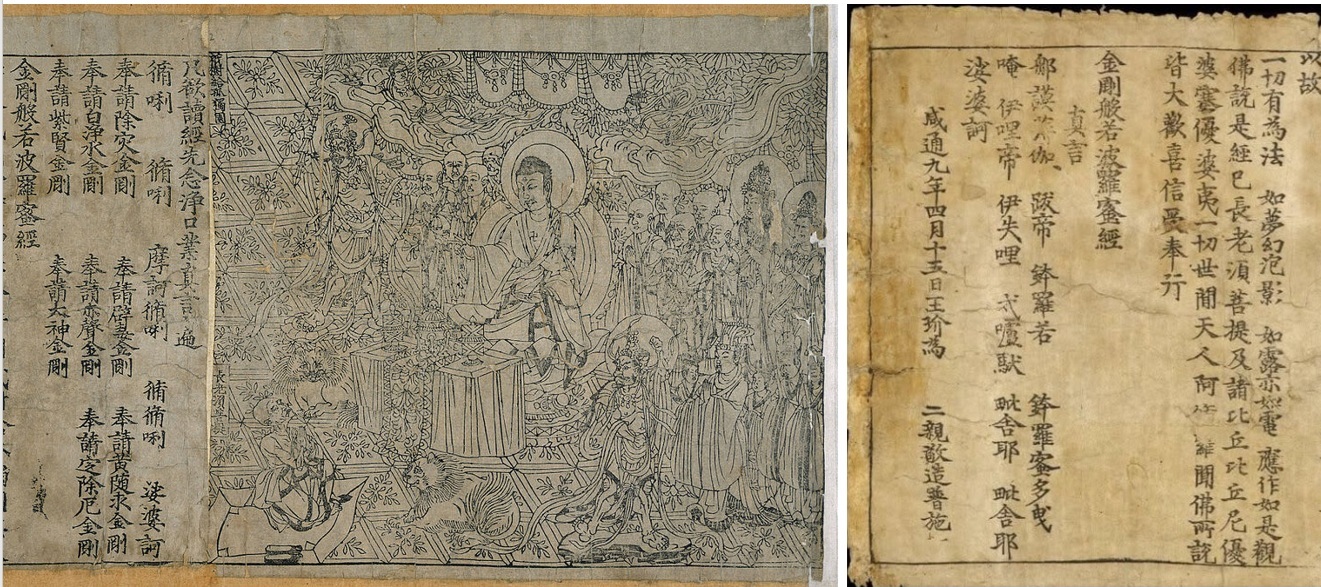 祇樹給孤獨園
長老須菩提
凡欲讀經先念淨口業真言一遍
脩唎 脩唎 摩訶脩唎 脩脩唎 娑婆訶
奉請除灾金剛 奉請辟毒金剛 奉請黃隨求金剛
奉請白淨水金剛 奉請赤聲金剛 奉請定除厄金剛
奉請紫賢金剛 奉請大神金剛
金剛般若波羅蜜經
以故
一切有為法 如夢幻泡影 如露亦如電 應作如是觀
佛說是經已長老須菩提及諸比丘比丘尼優
婆塞優婆夷一切世間天人阿修羅聞佛所說
皆大歡喜信受奉行
金剛般若波羅蜜經
真言
那謨薄伽 跋帝 鉢羅若 鉢羅蜜多曳
唵 伊哩帝 伊失哩 戍嚧馱 毗舍耶 毗舍耶
娑婆訶
咸通九年四月十五日王玠為 二親敬造普施